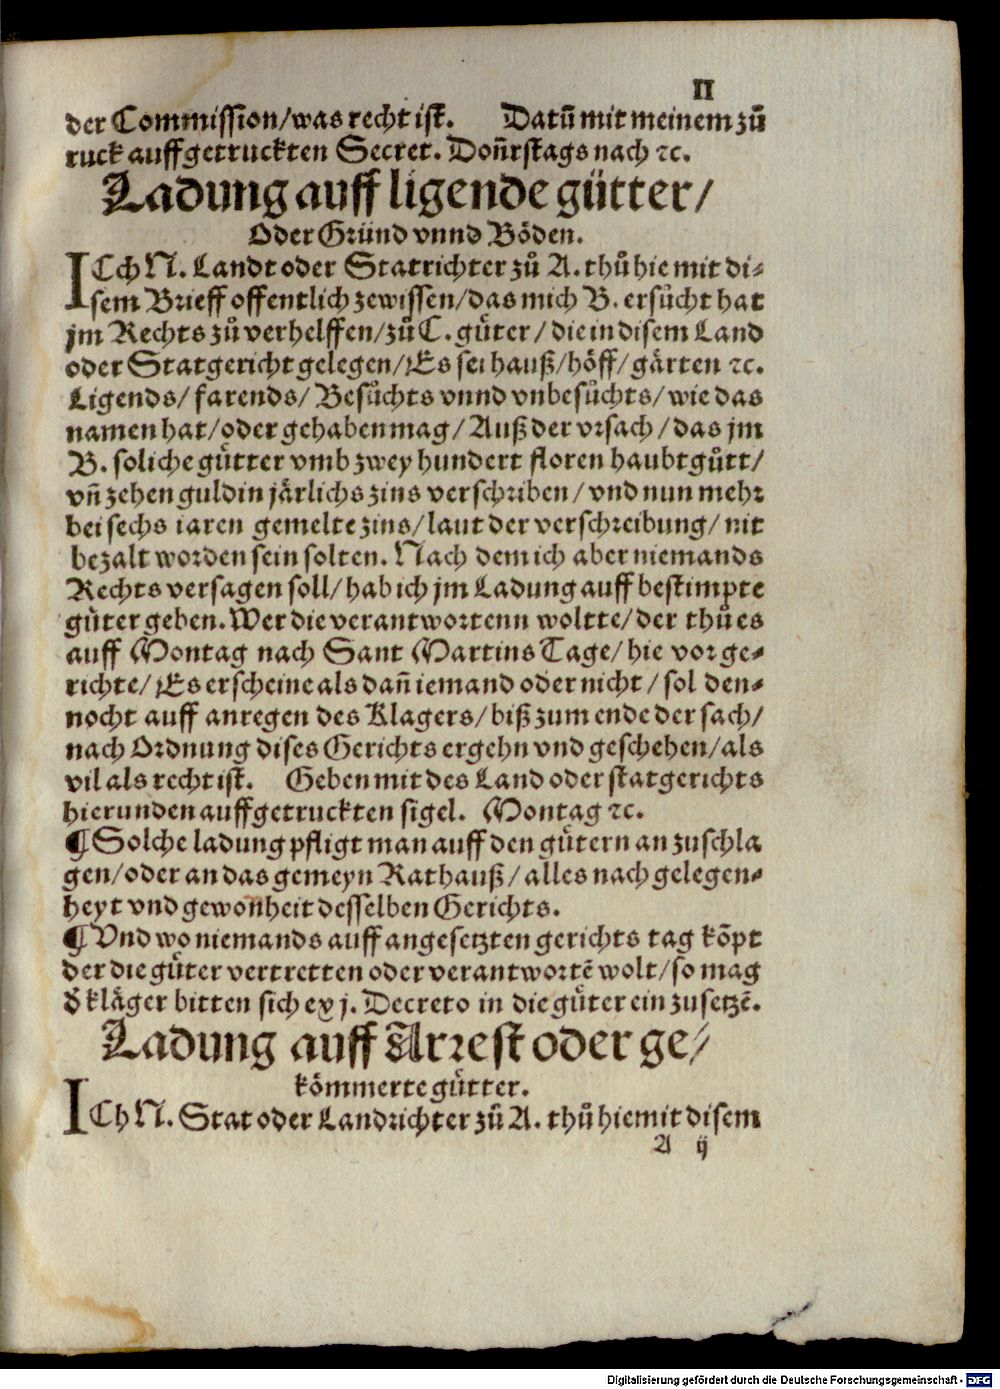 II
der Commission/was recht ist. Datū mit meinem zů
ruck auffgetruckten Secret. Doñrstags nach ꝛc.
Ladung auff ligende gütter/
Oder Gründ vnnd Böden.
ICh N. Landt oder Statrichter zů A. thů hie mit di-
sem Brieff offentlich zewissen/das mich B. ersůcht hat
jm Rechts zů verhelffen/zů C. gůter/die in disem Land
oder Statgericht gelegen/Es sei hauß/höff/gärten ꝛc.
Ligends/farends/Besůchts vnnd vnbesůchts/wie das
namen hat/oder gehaben mag/Auß der vrsach/das jm
B. soliche gütter vmb zwey hundert floren haubtgůtt/
vñ zehen guldin järlichs zins verschriben/vnd nun mehr
bei sechs iaren gemelte zins/laut der verschreibung/nit
bezalt worden sein solten. Nach dem ich aber niemands
Rechts versagen soll/hab ich jm Ladung auff bestimpte
gůter geben. Wer die verantwortenn woltte/der thů es
auff Montag nach Sant Martins Tage/hie vor ge-
richte/Es erscheine als dañ iemand oder nicht/sol den-
nocht auff anregen des Klagers/biß zum ende der sach/
nach Ordnung dises Gerichts ergehn vnd geschehen/als
vil als recht ist. Geben mit des Land oder statgerichts
hierunden auffgetruckten sigel. Montag ꝛc.
¶ Solche ladung pfligt man auff den gütern an zuschla
gen/oder an das gemeyn Rathauß/alles nach gelegen-
heyt vnd gewonheit desselben Gerichts.
¶ Vnd wo niemands auff angesetzten gerichts tag kõpt
der die güter vertretten oder verantwortẽ wolt/so mag
d̉ kläger bitten sich ex j. Decreto in die güter ein zusetzẽ.
Ladung auff Arrest oder ge-
kömmerte gütter.
ICh N. Stat oder Landrichter zů A. thů hiemit disem
A ij
Digitalisierung gefördert durch die Deutsche Forschungsgemeinschaft - DFG